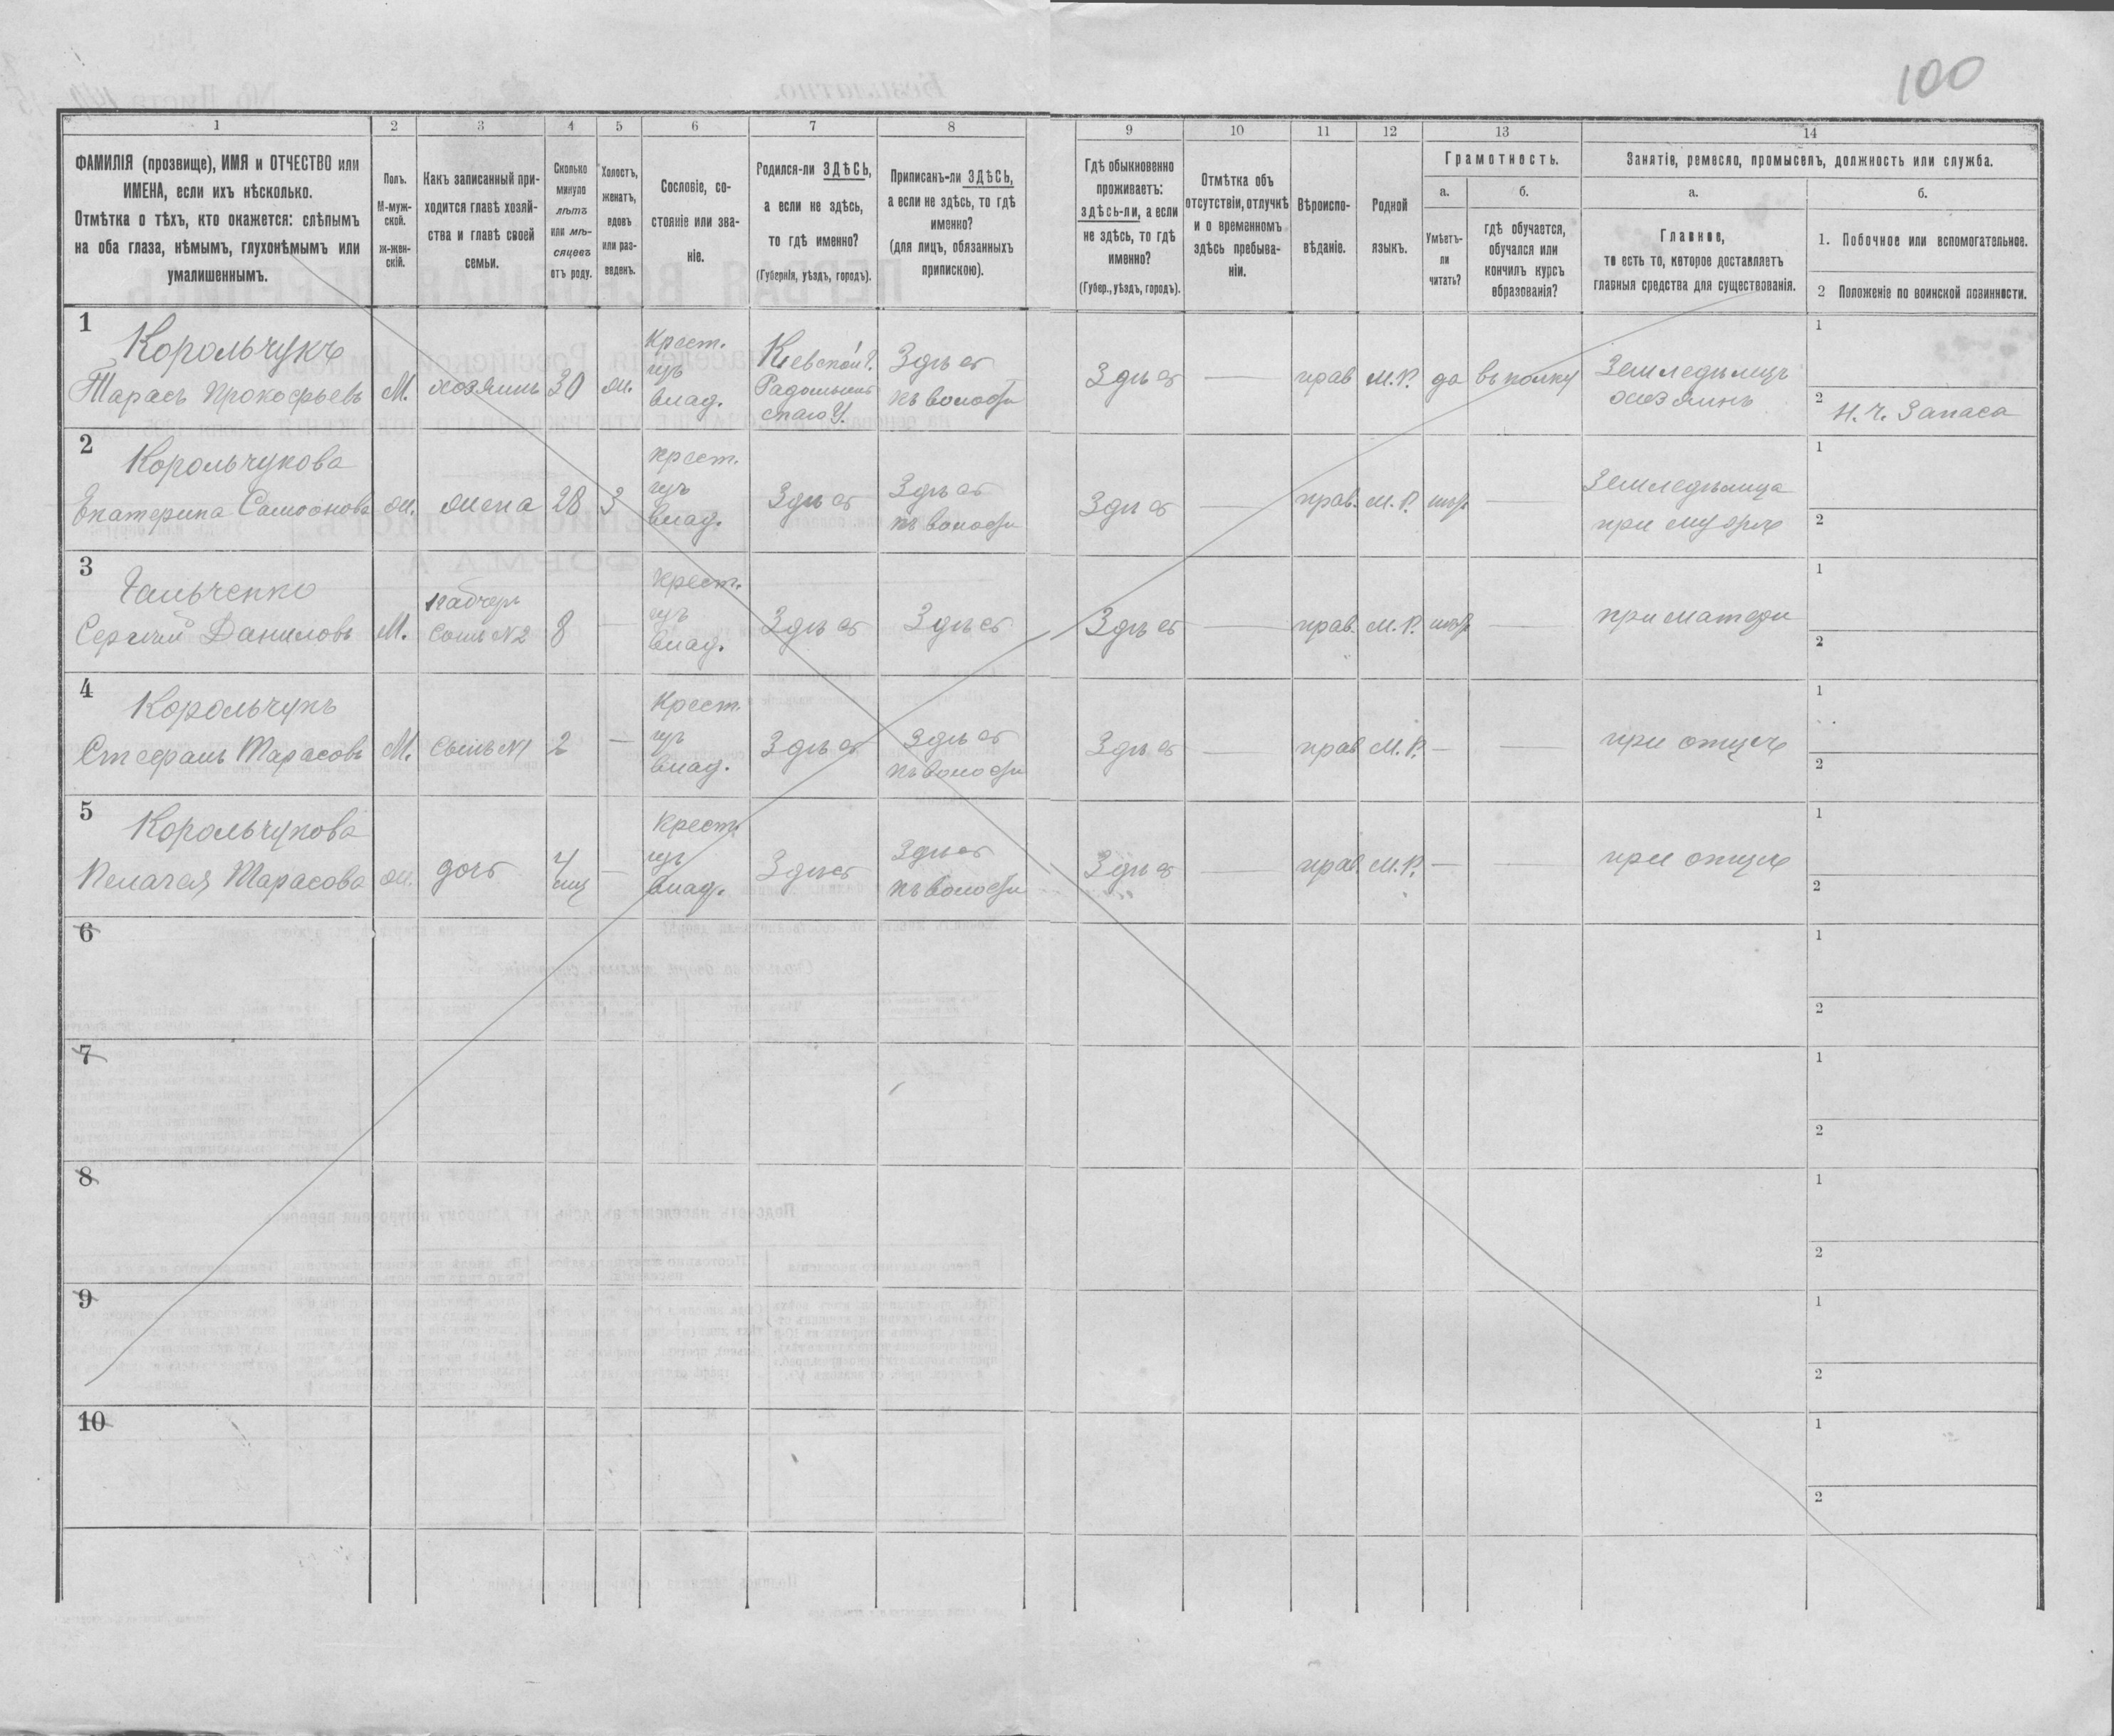 100
1 2 3 4 5 6 7 8 9 10 11 12 13 14
ФАМИЛІЯ (прозвище), ИМЯ и ОТЧЕСТВО или
ИМЕНА, если ихъ нѣсколько.
Отмѣтка о тѣхъ, кто окажется: слѣпымъ
на оба глаза, нѣмымъ, глухонѣмымъ или
умалишеннымъ.
Полъ.
М-муж-
ской.
ж-жен-
скій.
Какъ записанный при-
ходится главѣ хозяй-
ства и главѣ своей
семьи.
Сколько
минуло
лѣтъ
или мѣ-
сяцевъ
отъ роду.
Холостъ,
женатъ,
вдовъ
или раз-
веденъ.
Сословіе, со-
стояніе или зва-
ніе.
Родился-ли ЗДѢСЬ,
а если не здѣсь,
то гдѣ именно?
(Губернія, уѣздъ, городъ).
Приписанъ-ли ЗДѢСЬ,
а если не здѣсь, то гдѣ
именно?
(для лицъ, обязанныхъ
припискою).
Гдѣ обыкновенно
проживаетъ:
здѣсь-ли, а если
не здѣсь, то гдѣ
именно?
(Губер., уѣздъ, городъ).
Отмѣтка объ
отсутствіи, отлучкѣ
и о временномъ
здѣсь пребыва-
ніи.
Вѣроиспо-
вѣданіе.
Родной
языкъ.
Грамотность.
а.
Умѣетъ-
ли
читать?
б.
гдѣ обучается,
обучался или
кончилъ курсъ
образованія?
Занятіе, ремесло, промыселъ, должность или служба.
а.
Главное,
то есть то, которое доставляетъ
главныя средства для существованія.
б.
1. Побочное или вспомогательное.
2 Положеніе по воинской повинности.
1
Корольчукъ
Тарасъ Прокофьевъ
М.
хозяинъ
30
ж.
Крест.
изъ
влад.
Кіевской г.
Радомысль
скаго У.
Здѣсь
къ волости
Здѣсь
—
прав
М.Р.
да
въ полку
Земледѣлецъ
хозяинъ
1
2 Н. ч. Запаса
2
Корольчукова
Екатерина Самсонова
ж.
жена
28
З
крест.
изъ
влад.
Здѣсь
Здѣсь
къ волости
Здѣсь
—
прав.
М.Р.
—
Земледѣлица
при мужѣ
1
2
3
Гальченко
Сергѣй Даниловъ
М.
Сынъ N2
8
—
Крест.
изъ
влад.
Здѣсь
Здѣсь
Здѣсь
—
прав.
М.Р.
—
при матери
1
2
4
Корольчукъ
Стефанъ Тарасовъ
М.
Сынъ N1
2
—
Крест.
изъ
влад.
Здѣсь
Здѣсь
къ волости
Здѣсь
—
прав
М.Р.
—
—
при отцѣ
1
2
5
Корольчукова
Пелагея Тарасова
ж.
дочь
4
мц
—
Крест.
изъ
влад.
Здѣсь
Здѣсь
къ волости
Здѣсь
—
прав.
М.Р.
—
—
при отцѣ
1
2
6
1
2
7
1
2
8
1
2
9
1
2
10
1
2